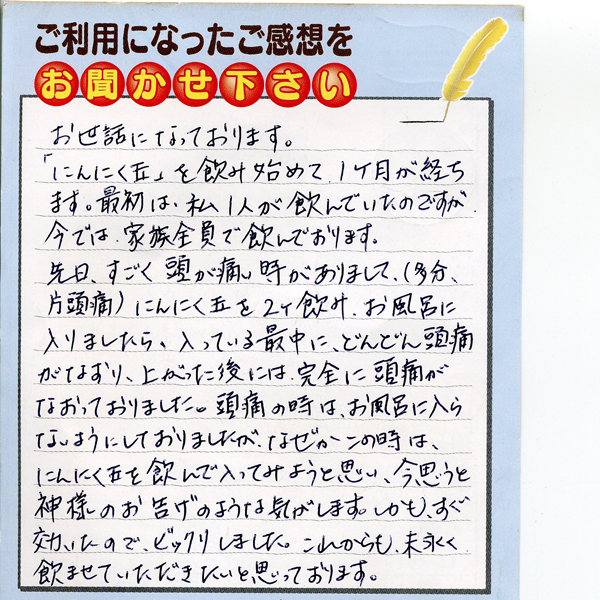 ご利用になったご感想を
お聞かせ下さい
お世話になっております。
「にんにく玉」を飲み始めて、1ヶ月が経ち
ます。最初は、私1人が飲んでいたのですが
今では、家族全員で飲んでおります。
先日、すごく頭が痛い時がありまして、(多分、
片頭痛)にんにく玉を2ヶ飲み、お風呂に
入りましたら、入っている最中に、どんどん頭痛
がなおり、上がった後には、完全に頭痛が
なおっておりました。頭痛の時は、お風呂に入ら
ないようにしておりましたが、なぜかこの時は、
にんにく玉を飲んで入ってみようと思い、今思うと
神様のお告げのような気がします。しかも、すぐ
効いたので、ビックリしました。これからも、末永く
飲ませていただきたいと思っております。